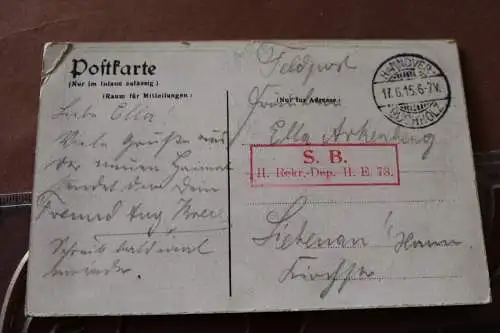 Postkarte
(Nur im Inland zulässig.)
(Raum für Mitteilungen)
Liebe Ella!
Viele Grüße aus
der neuen Heimat
sendet dir dein
Freund Aug
Schreib bald mal
wieder.
Feldpost
HANNOVER
17.6.15.6-7V.
BUCHHOLZ
(Nur für Adresse)
Fräulein
Ella
S. B.
II. Rekr.-Dep. II. E. 73.
Liebenau / Hann.